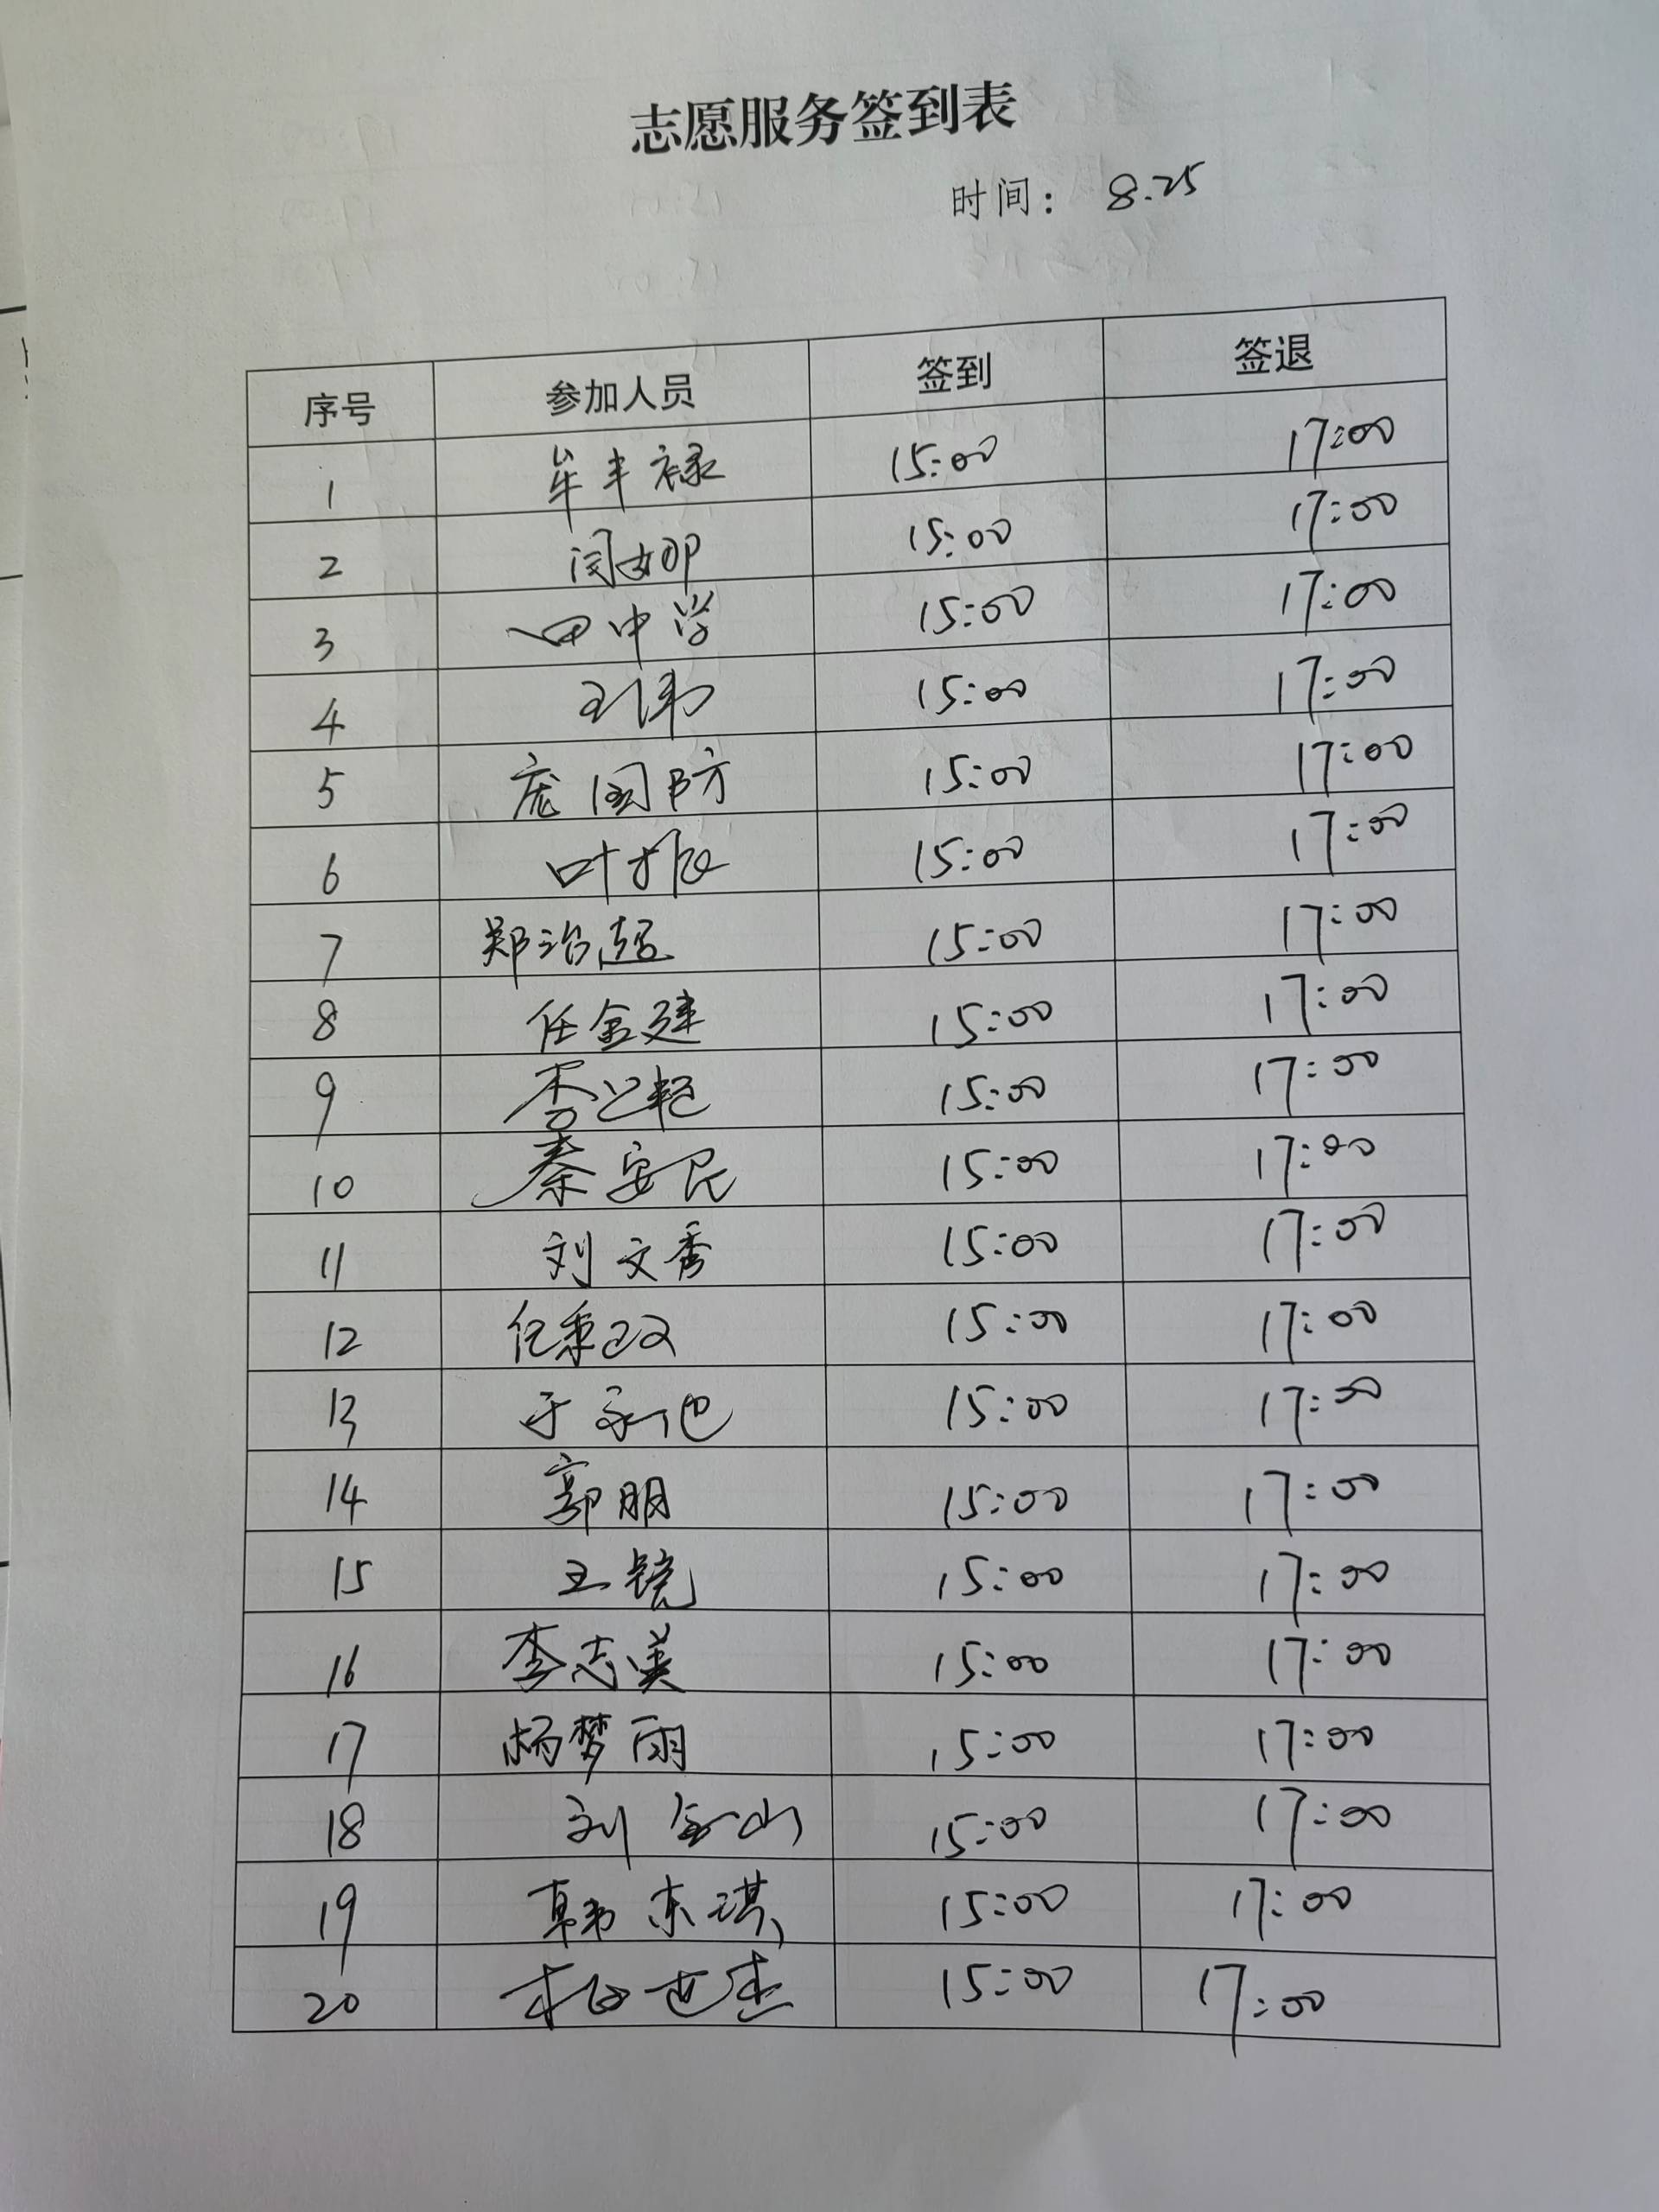 志愿服务签到表
时间： 8.25
序号 参加人员 签到 签退
1 牟丰禄 15:00 17:00
2 闫娜 15:00 17:00
3 田中学 15:00 17:00
4 王伟 15:00 17:00
5 庞国防 15:00 17:00
6 叶振 15:00 17:00
7 郑治超 15:00 17:00
8 任金建 15:00 17:00
9 李 15:00 17:00
10 秦安民 15:00 17:00
11 刘文秀 15:00 17:00
12 任秉政 15:00 17:00
13 于永 15:00 17:00
14 郭朋 15:00 17:00
15 王 15:00 17:00
16 李志美 15:00 17:00
17 杨梦雨 15:00 17:00
18 刘金山 15:00 17:00
19 韩东琪 15:00 17:00
20 世杰 15:00 17:00